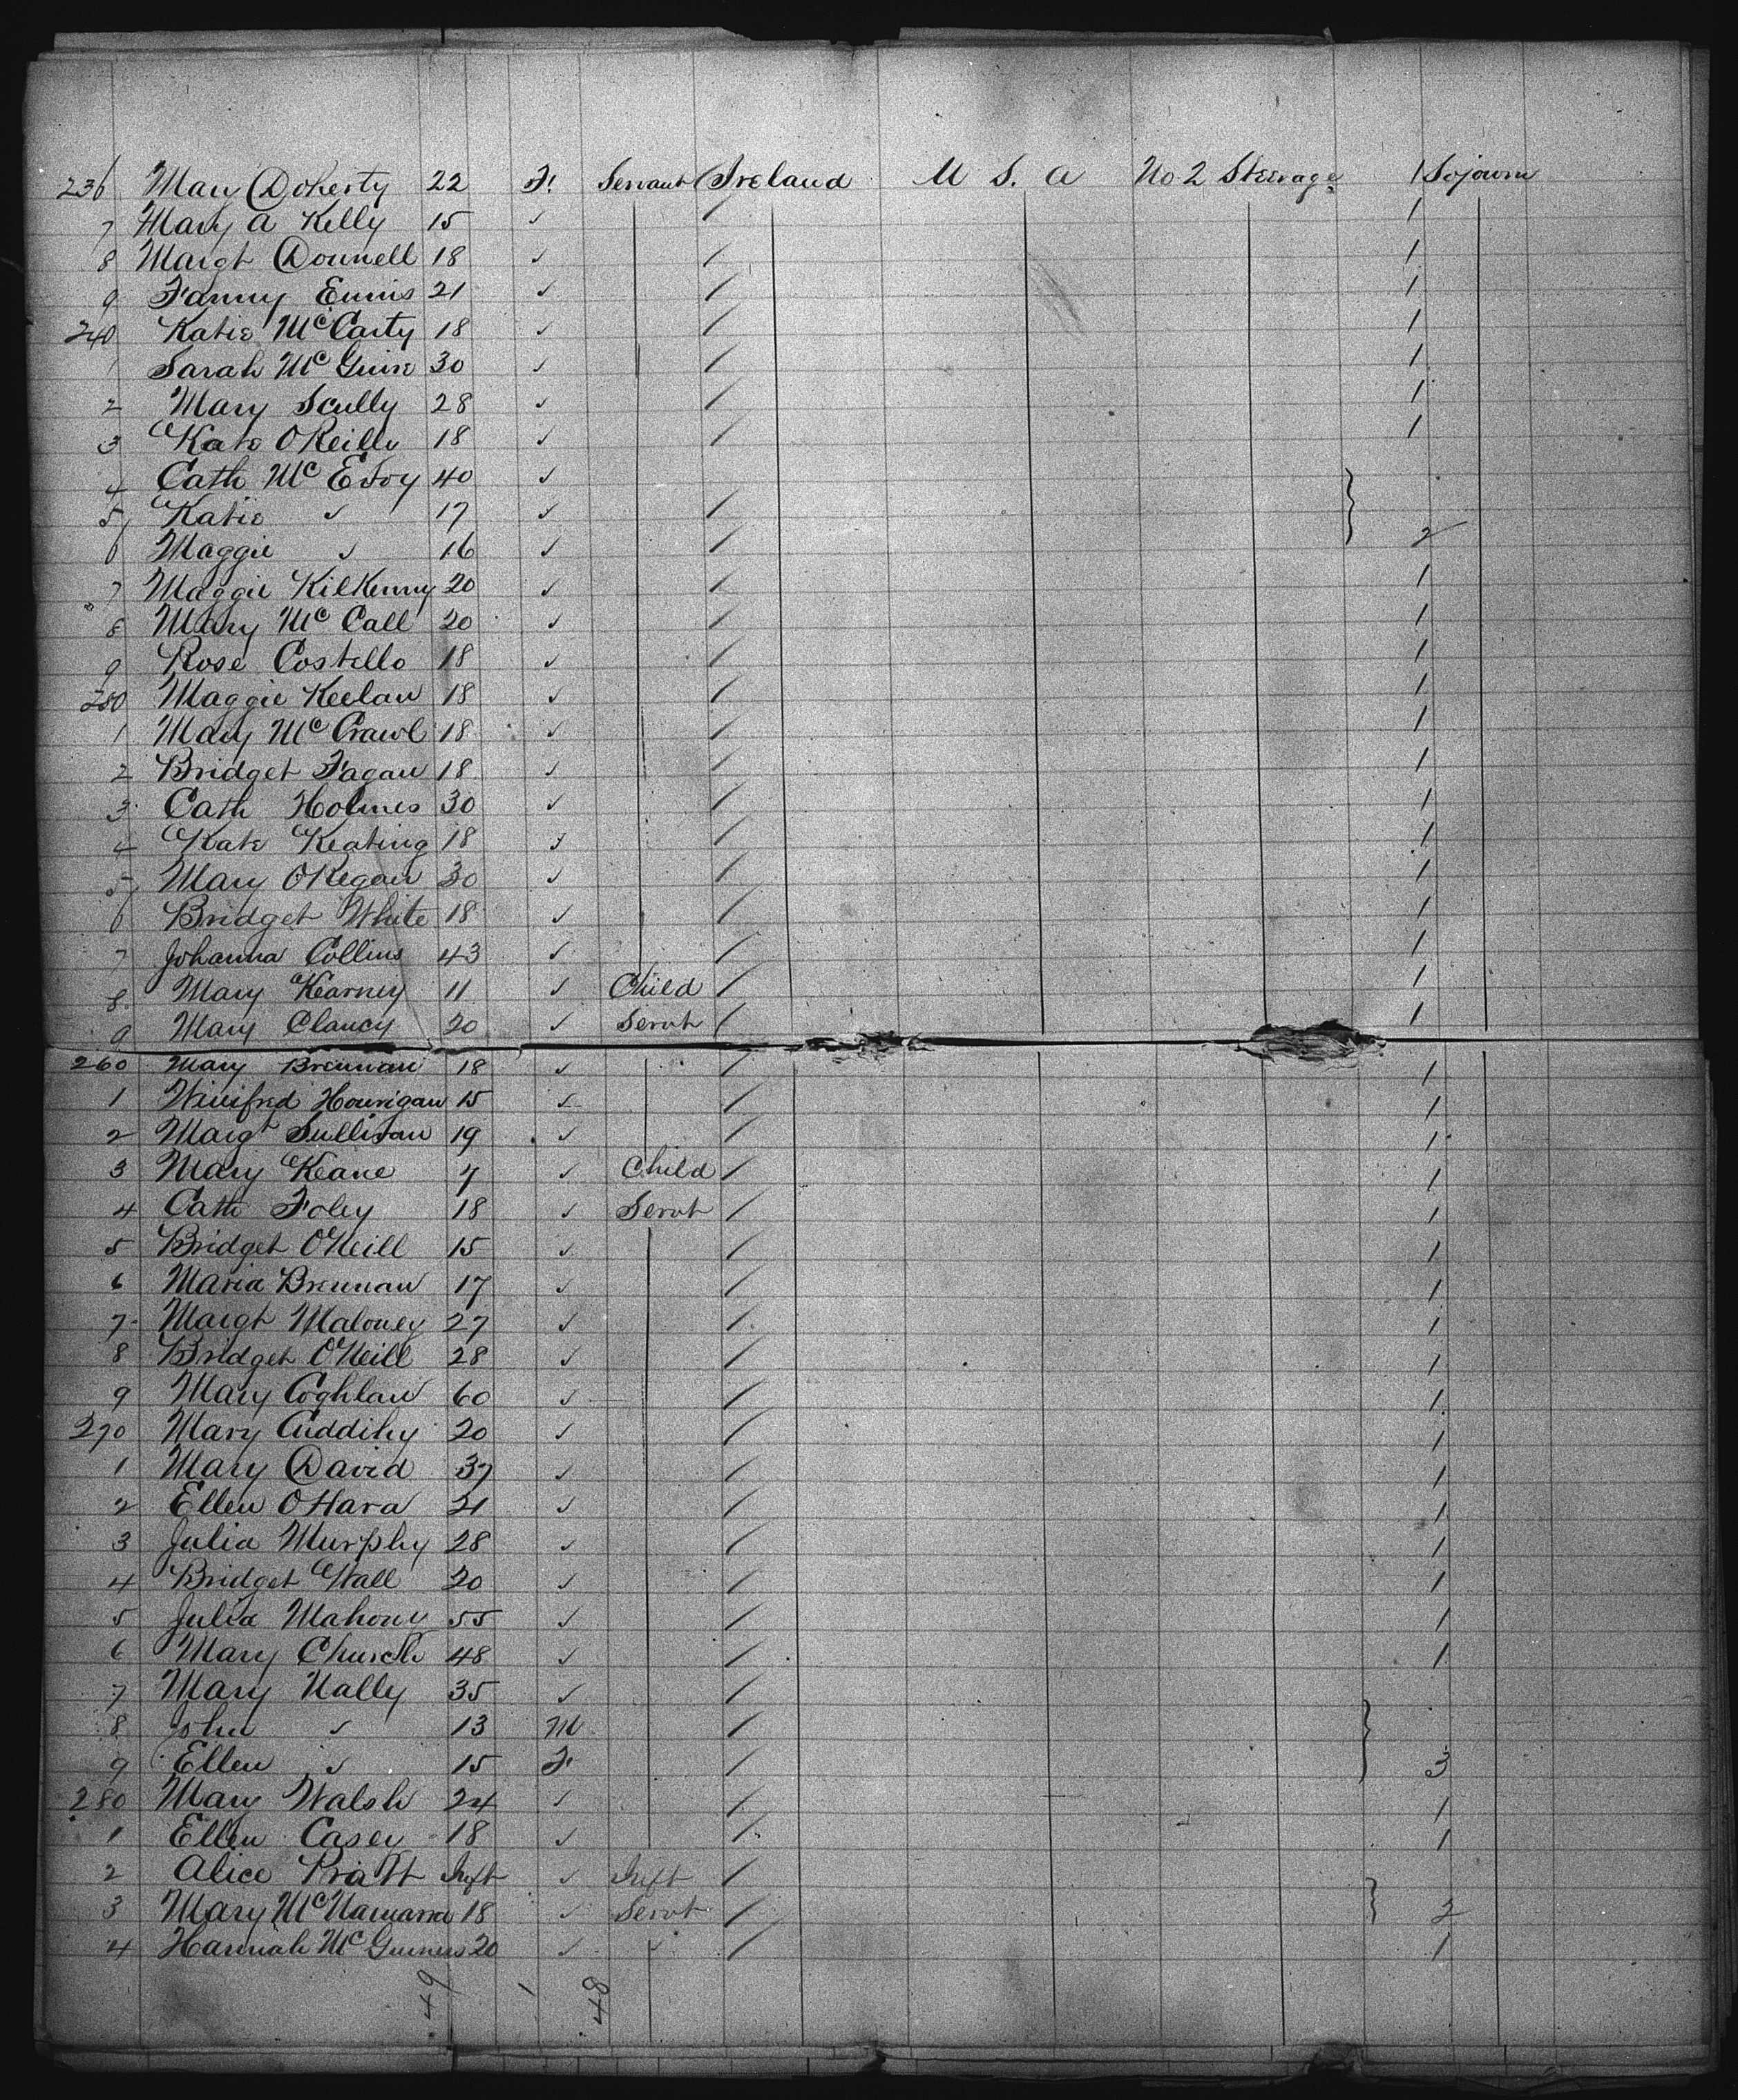 236 Mary Doherty 22 F. Servant Ireland U S. A No 2 Steerage 1 Sojourn
7 Mary A Kelly 15 ✓ / 1
8 Margt Donnell 18 ✓ / 1
9 Fanny Ennis 21 ✓ / 1
240 Katie McCarty 18 ✓ / 1
1 Sarah McGuire 30 ✓ / 1
2 Mary Scully 28 ✓ / 1
3 Kate OReilly 18 ✓ / 1
4 Cath McEvoy 40 ✓
5 Katie ✓ 17 ✓ /
6 Maggie ✓ 16 ✓ / 2
7 Maggie Kilkenny 20 ✓ / 1
8 Mary McCall 20 ✓ / 1
9 Rose Costello 18 ✓ / 1
250 Maggie Keelan 18 ✓ / 1
1 Mary McCrawl 18 ✓ / 1
2 Bridget Fagan 18 ✓ / 1
3 Cath Holmes 30 ✓ / 1
4 Kate Keating 18 ✓ / 1
5 Mary OKegan 30 ✓ / 1
6 Bridget White 18 ✓ / 1
7 Johanna Collins 43 ✓ / 1
8 Mary Kearney 11 ✓ Child / 1
9 Mary Clancy 20 ✓ Servt / 1
260 Mary Brennan 18 ✓ / 1
1 Winifred Hourigan 15 ✓ / 1
2 Margt Sullivan 19 ✓ / 1
3 Mary Keane 7 ✓ Child / 1
4 Cath Foley 18 ✓ Servt / 1
5 Bridget O'Neill 15 ✓ / 1
6 Maria Brennan 17 ✓ / 1
7 Margt Maloney 27 ✓ / 1
8 Bridget O'Neill 28 ✓ / 1
9 Mary Coghlan 60 ✓ / 1
270 Mary Cuddihy 20 ✓ / 1
1 Mary David 37 ✓ / 1
2 Ellen OHara 21 ✓ / 1
3 Julia Murphy 28 ✓ / 1
4 Bridget Wall 20 ✓ / 1
5 Julia Mahony 55 ✓ / 1
6 Mary Church 48 ✓ / 1
7 Mary Nally 35 ✓ /
8 John ✓ 13 M /
9 Ellen ✓ 15 F. / 3
280 Mary Walsh 24 ✓ / 1
1 Ellen Casey 18 ✓ / 1
2 Alice Pratt Inft ✓ Inft /
3 Mary McNamara 18 ✓ Servt / 2
4 Hannah McGuiness 20 ✓ ✓ / 1
49 1 48